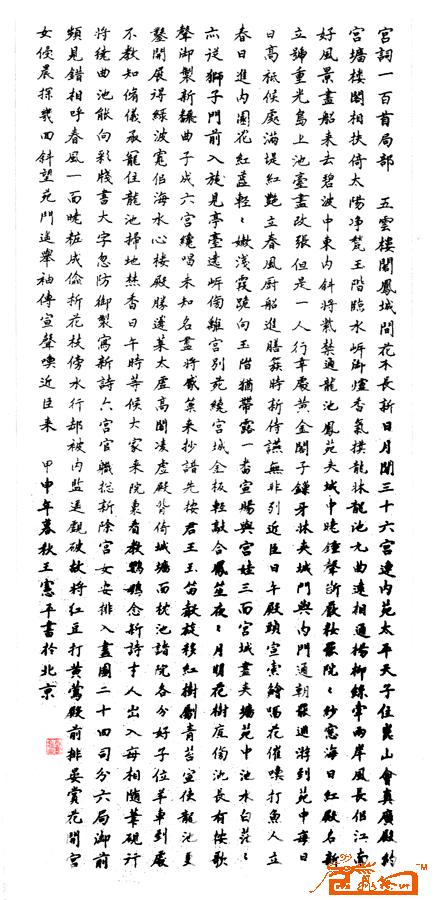 宮詞一百首局部　五雲樓閣鳳城間花木長新日月閒三十六宮連內苑太平天子住崑山會真廣殿約
宮墻樓閣相扶倚太陽淨甃玉階臨水岸御爐香氣撲龍牀龍池九曲遠相通楊柳絲牽兩岸風長似江南
好風景畫船來去碧波中東內斜將紫禁通龍池鳳苑夾城中曉鍾聲斷嚴妝罷院〻紗窗海日紅殿名新
立號重光島上池臺盡改張但是一人行幸處黃金閣子鎖牙牀夾城門與內門通朝罷巡遊到苑中每日
日高祗候處滿堤紅艷立春風廚船進膳簇時新侍讌無非列近臣日午殿頭宣索鱠隔花催喚打魚人立
春日進內園花紅蕊輕〻嫩淺霞跪向玉階猶帶露一番宣賜與宮娃三面宮城盡夾墻苑中池水白茫〻
亦從獅子門前入旋見亭臺遶岸傍離宮別苑繞宮城金板輕敲合鳳笙夜〻月明花樹底傍池長有按歌
聲御製新翻曲子成六宮纔唱未知名盡將觱篥來抄譜先按君王玉笛聲旋移紅樹劚青苔宣使龍池更
鑿開展得綠波寬似海水心樓殿勝蓬萊太虛高閣凌虛殿背倚城墻面枕池諸院各分娘子位羊車到處
不教知修儀承寵住龍池掃地焚香日午時等候大家來院裏看教鸚鵡念新詩才人出入每相隨筆硯行
將繞曲池能向彩牋書大字忽防御製寫新詩六宮官職總新除宮女安排入畫圖二十四司分六局御前
頻見錯相呼春風一面曉妝成偷折花枝傍水行却被內監遙覷破故將紅豆打黃鶯殿前排宴賞花開宮
女侵晨探幾回斜望苑門遙舉袖傳宣聲喚近臣來　甲申年暮秋王憲平書於北京